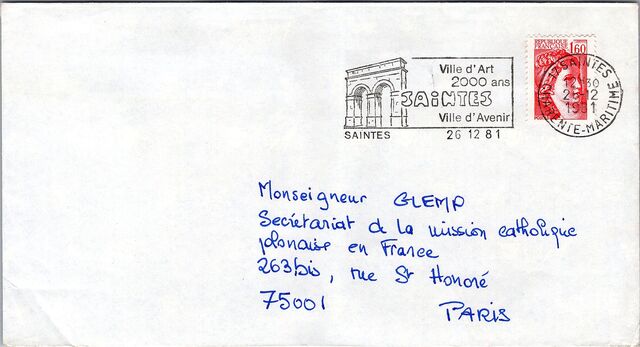 Ville d'Art
2000 ans
SAINTES
Ville d'Avenir
SAINTES
26 12 81
REPUBLIQUE FRANÇAISE
1,60
17 SAINTES
12H30
26-12
1981
CHARENTE-MARITIME
Monseigneur GLEMP
Secrétariat de la mission catholique
polonaise en France
263bis, rue St Honoré
75001 PARIS